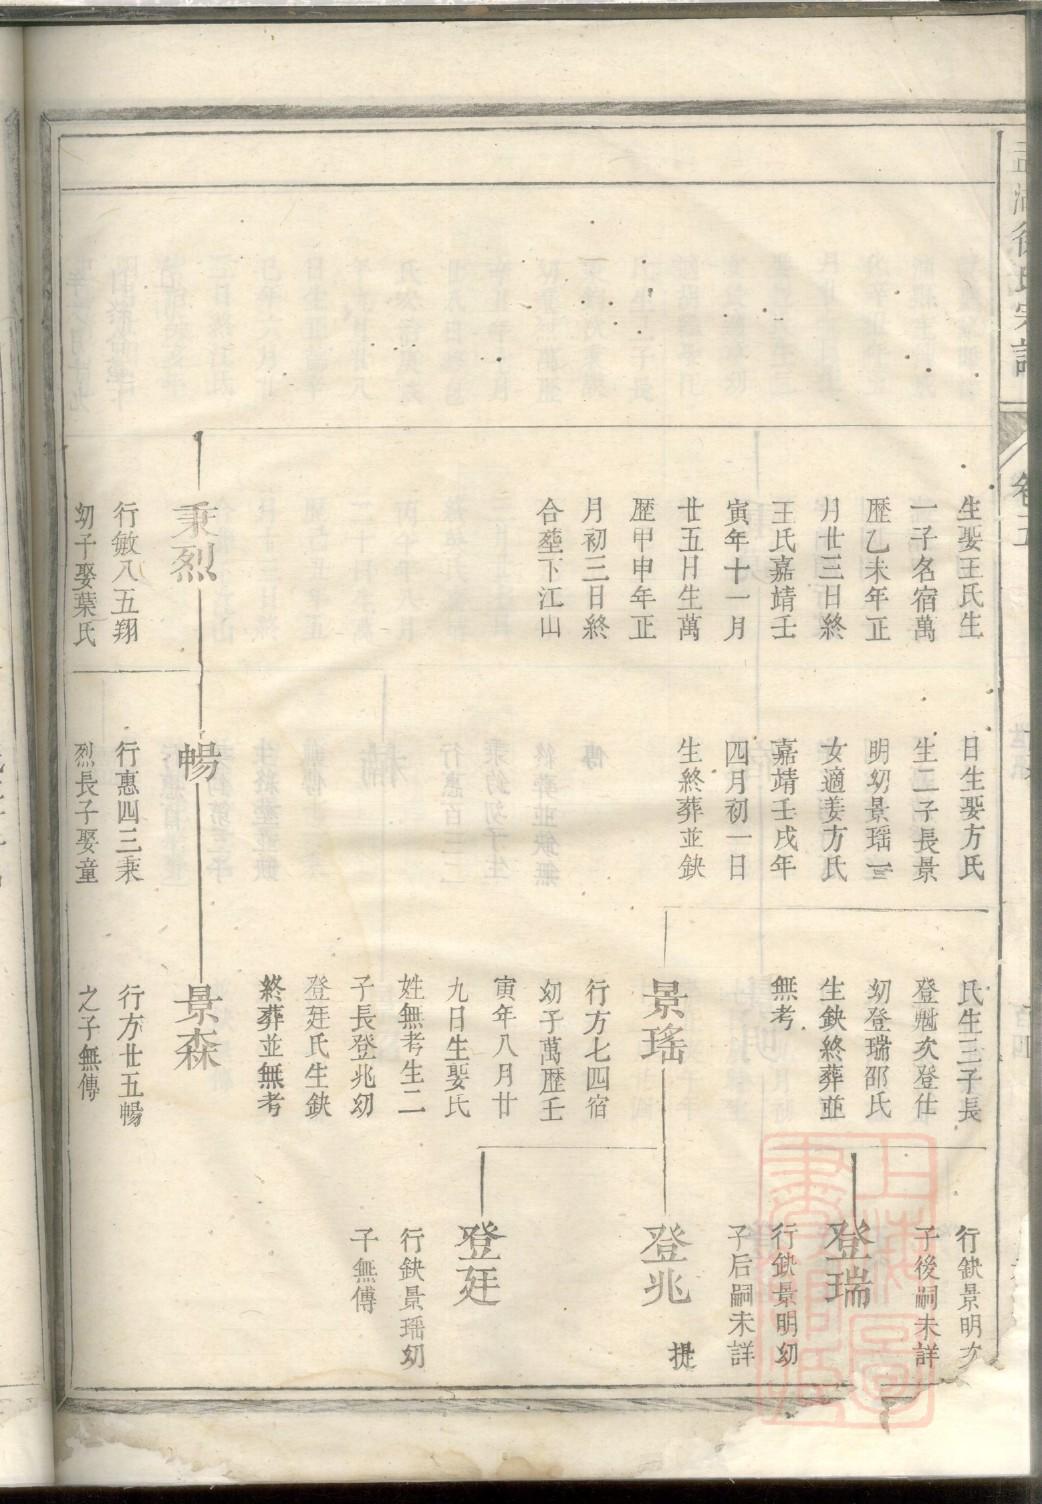 徐氏宗譜
卷五
生娶王氏生
一子名宿萬
歷乙未年正
月廿三日終
王氏嘉靖壬
寅年十一月
廿五日生萬
歷甲申年正
月初三日終
合塟下江山
秉烈
行敏八五翔
幼子娶葉氏
日生娶方氏
生二子長景
明幼景瑶一
女適姜方氏
嘉靖壬戌年
四月初一日
生終葬並缺
暢
行惠四三秉
烈長子娶童
氏生三子長
登魁次登仕
幼登瑞邵氏
生缺終葬並
無考
景瑤
行方七四宿
幼子萬歷壬
寅年八月廿
九日生娶氏
姓無考生二
子長登兆幼
登廷氏生缺
終葬並無考
景森
行方廿五暢
之子無傳
行缺景明次
子後嗣未詳
登瑞
行缺景明幼
子后嗣未詳
登兆
提
登廷
行缺景瑶幼
子無傳